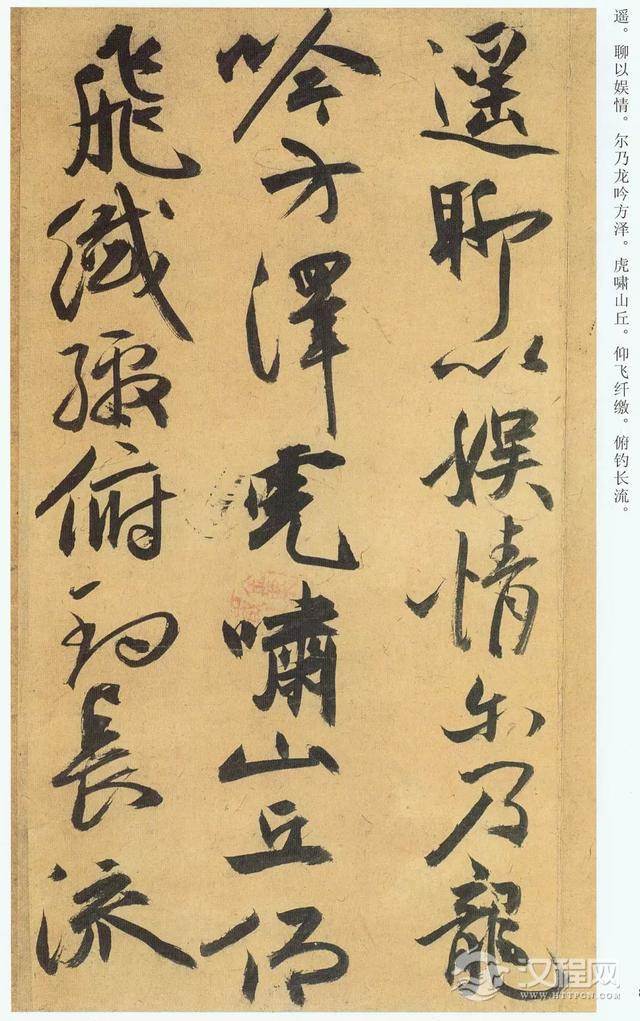 遥。聊以娱情。尔乃龙吟方泽。虎啸山丘。仰飞纤缴。俯钓长流。
遥聊以娱情尔乃龍
吟方澤虎嘯山丘仰
飛纖繳俯釣長流
汉程网
WWW.HTTPCN.COM